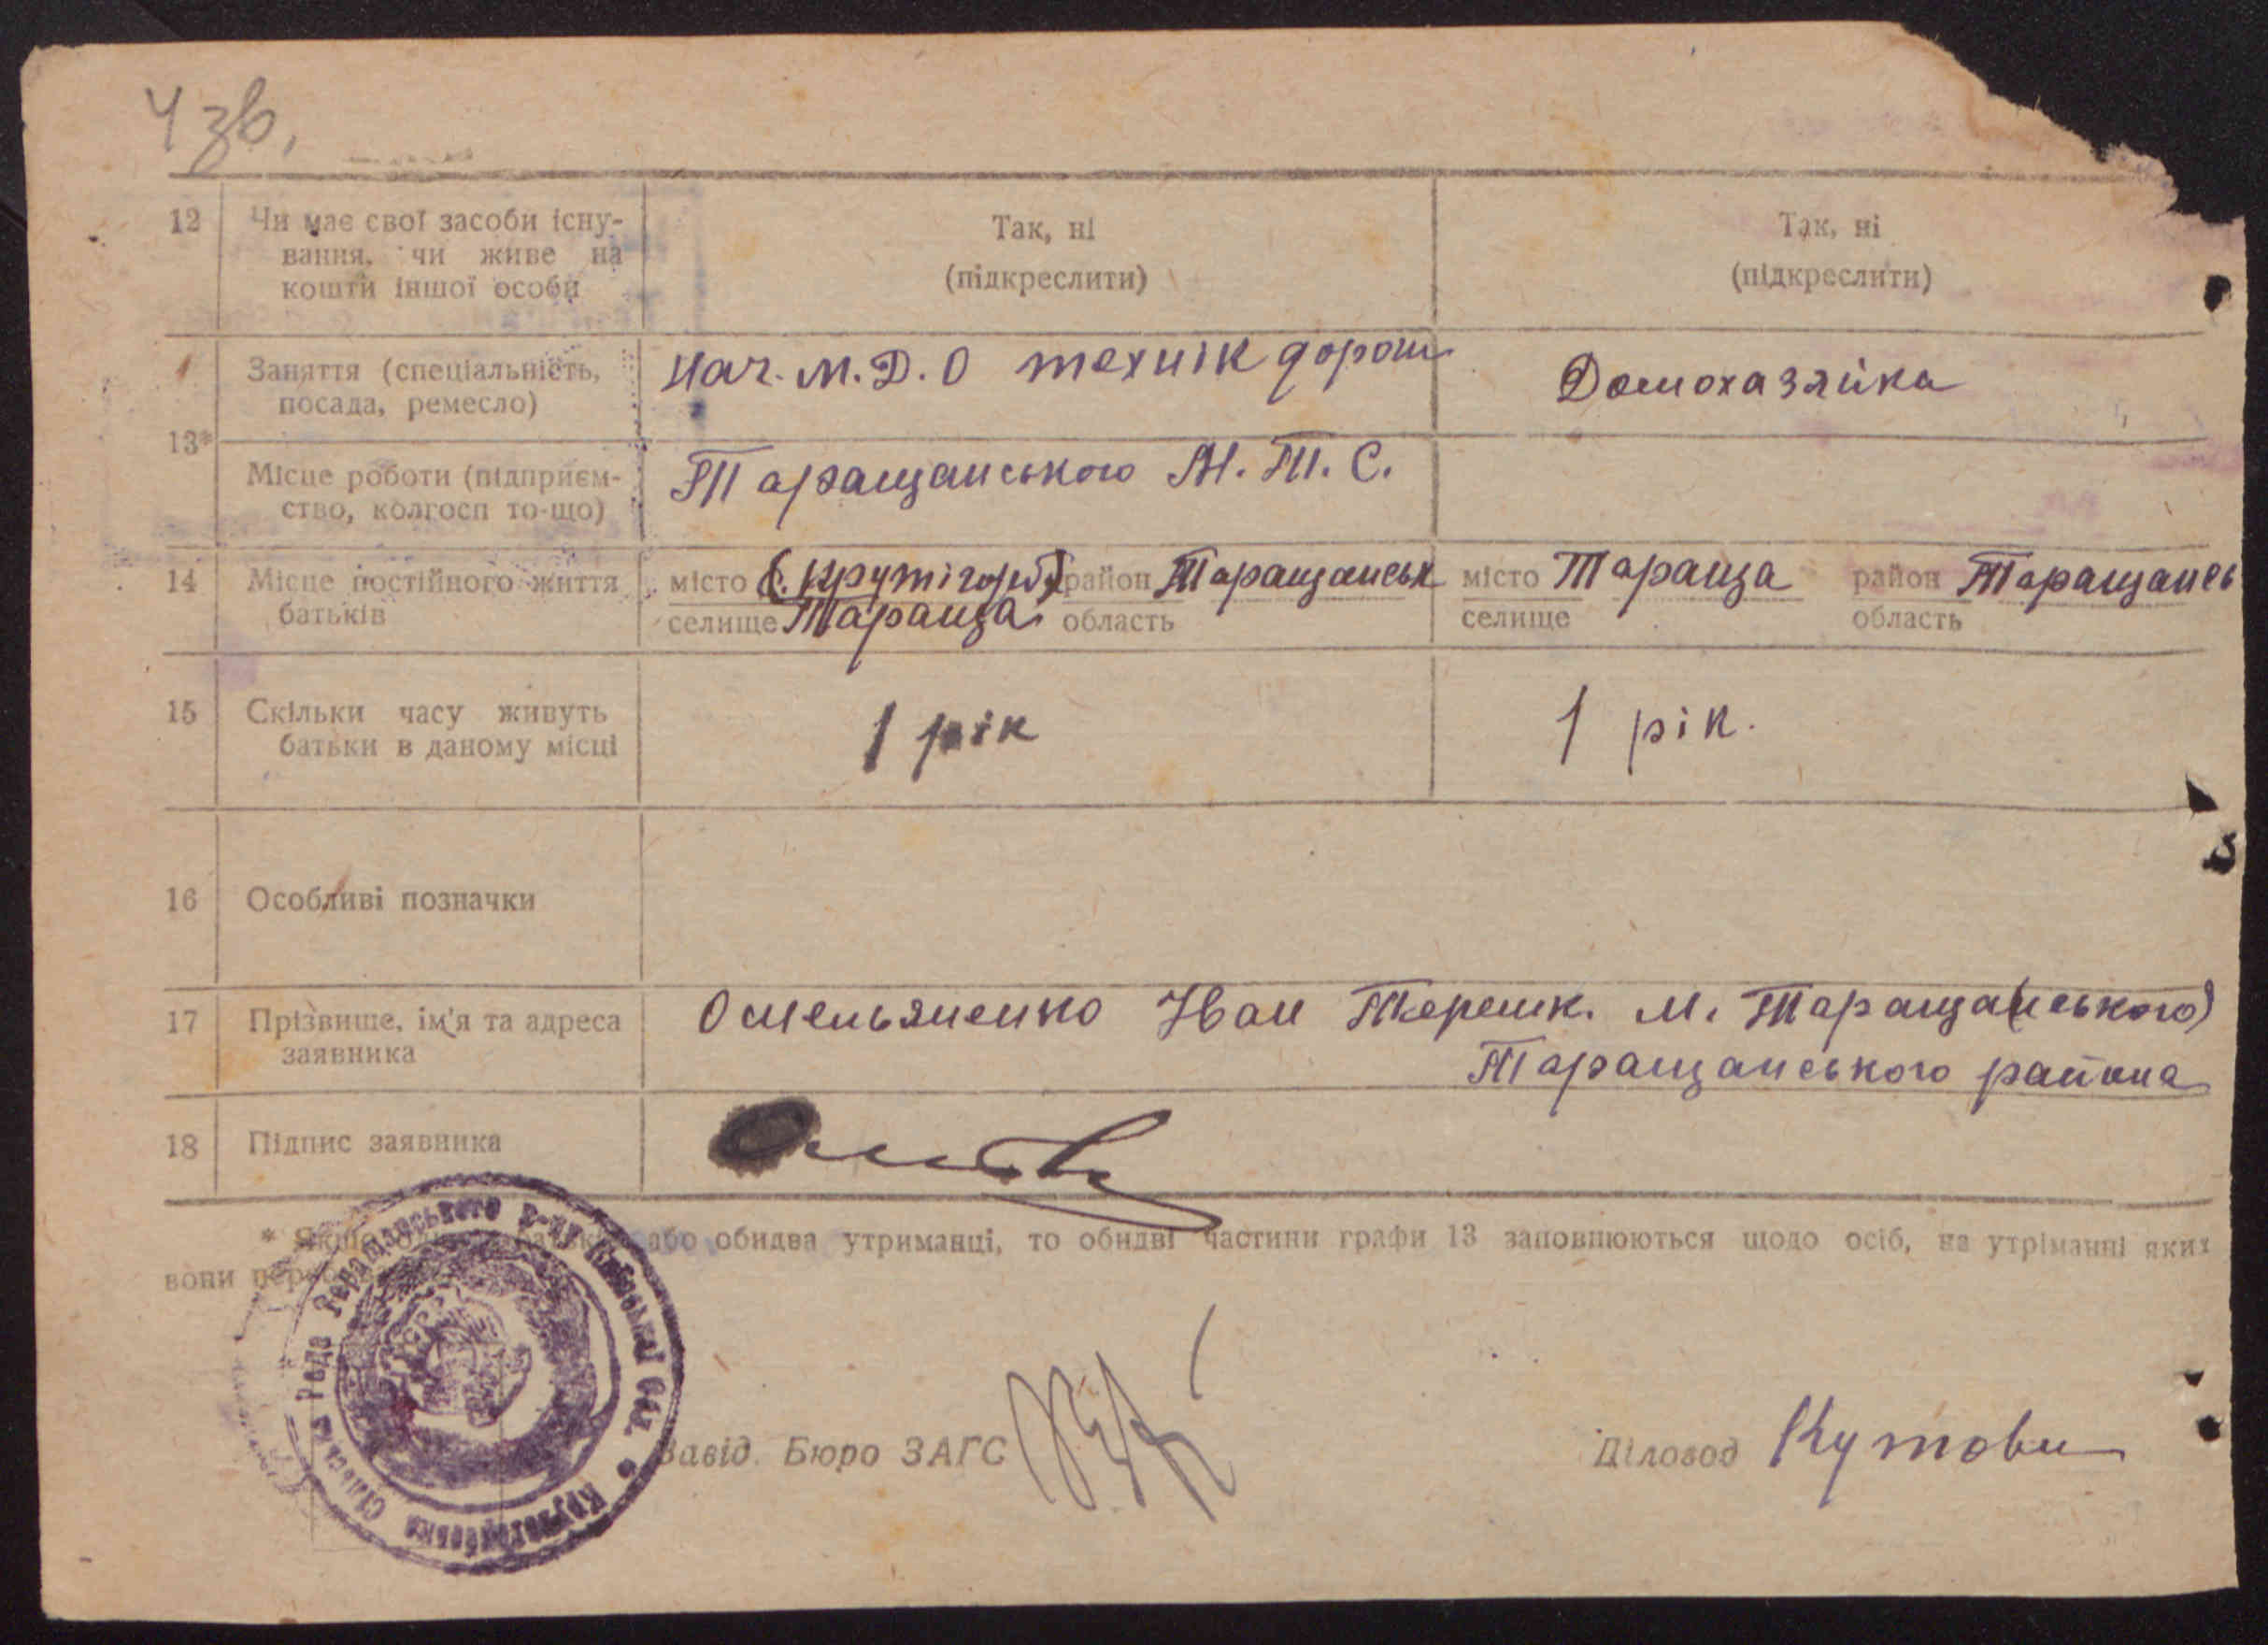 4 зв.
12 Чи має свої засоби існу-
вання, чи живе на
кошти іншої особи
Так, ні
(підкреслити)
Так, ні
(підкреслити)
13*
Заняття (спеціальність,
посада, ремесло)
Нач. М.Д.О технік дорош
Домохазяйка
Місце роботи (підприєм-
ство, колгосп то-що)
Таращанського М.Т.С.
14 Місце постійного життя
батьків
місто (с. Крутігорб) район Таращанськ
селище Тараща область
місто Тараща район Таращансь
селище область
15 Скільки часу живуть
батьки в даному місці
1 рік
1 рік.
16 Особливі позначки
17 Прізвище, ім'я та адреса
заявника
Омельяненко Іван Терешк. м. Тараща(нського)
Таращанського района
18 Підпис заявника
* Якщо або обидва утриманці, то обидві частини графи 13 заповнюються щодо осіб, на утріманні яких
вони
Сільська Рада Таращанського р-ну Київської Обл.
Завід. Бюро ЗАГС
Діловод Кутови